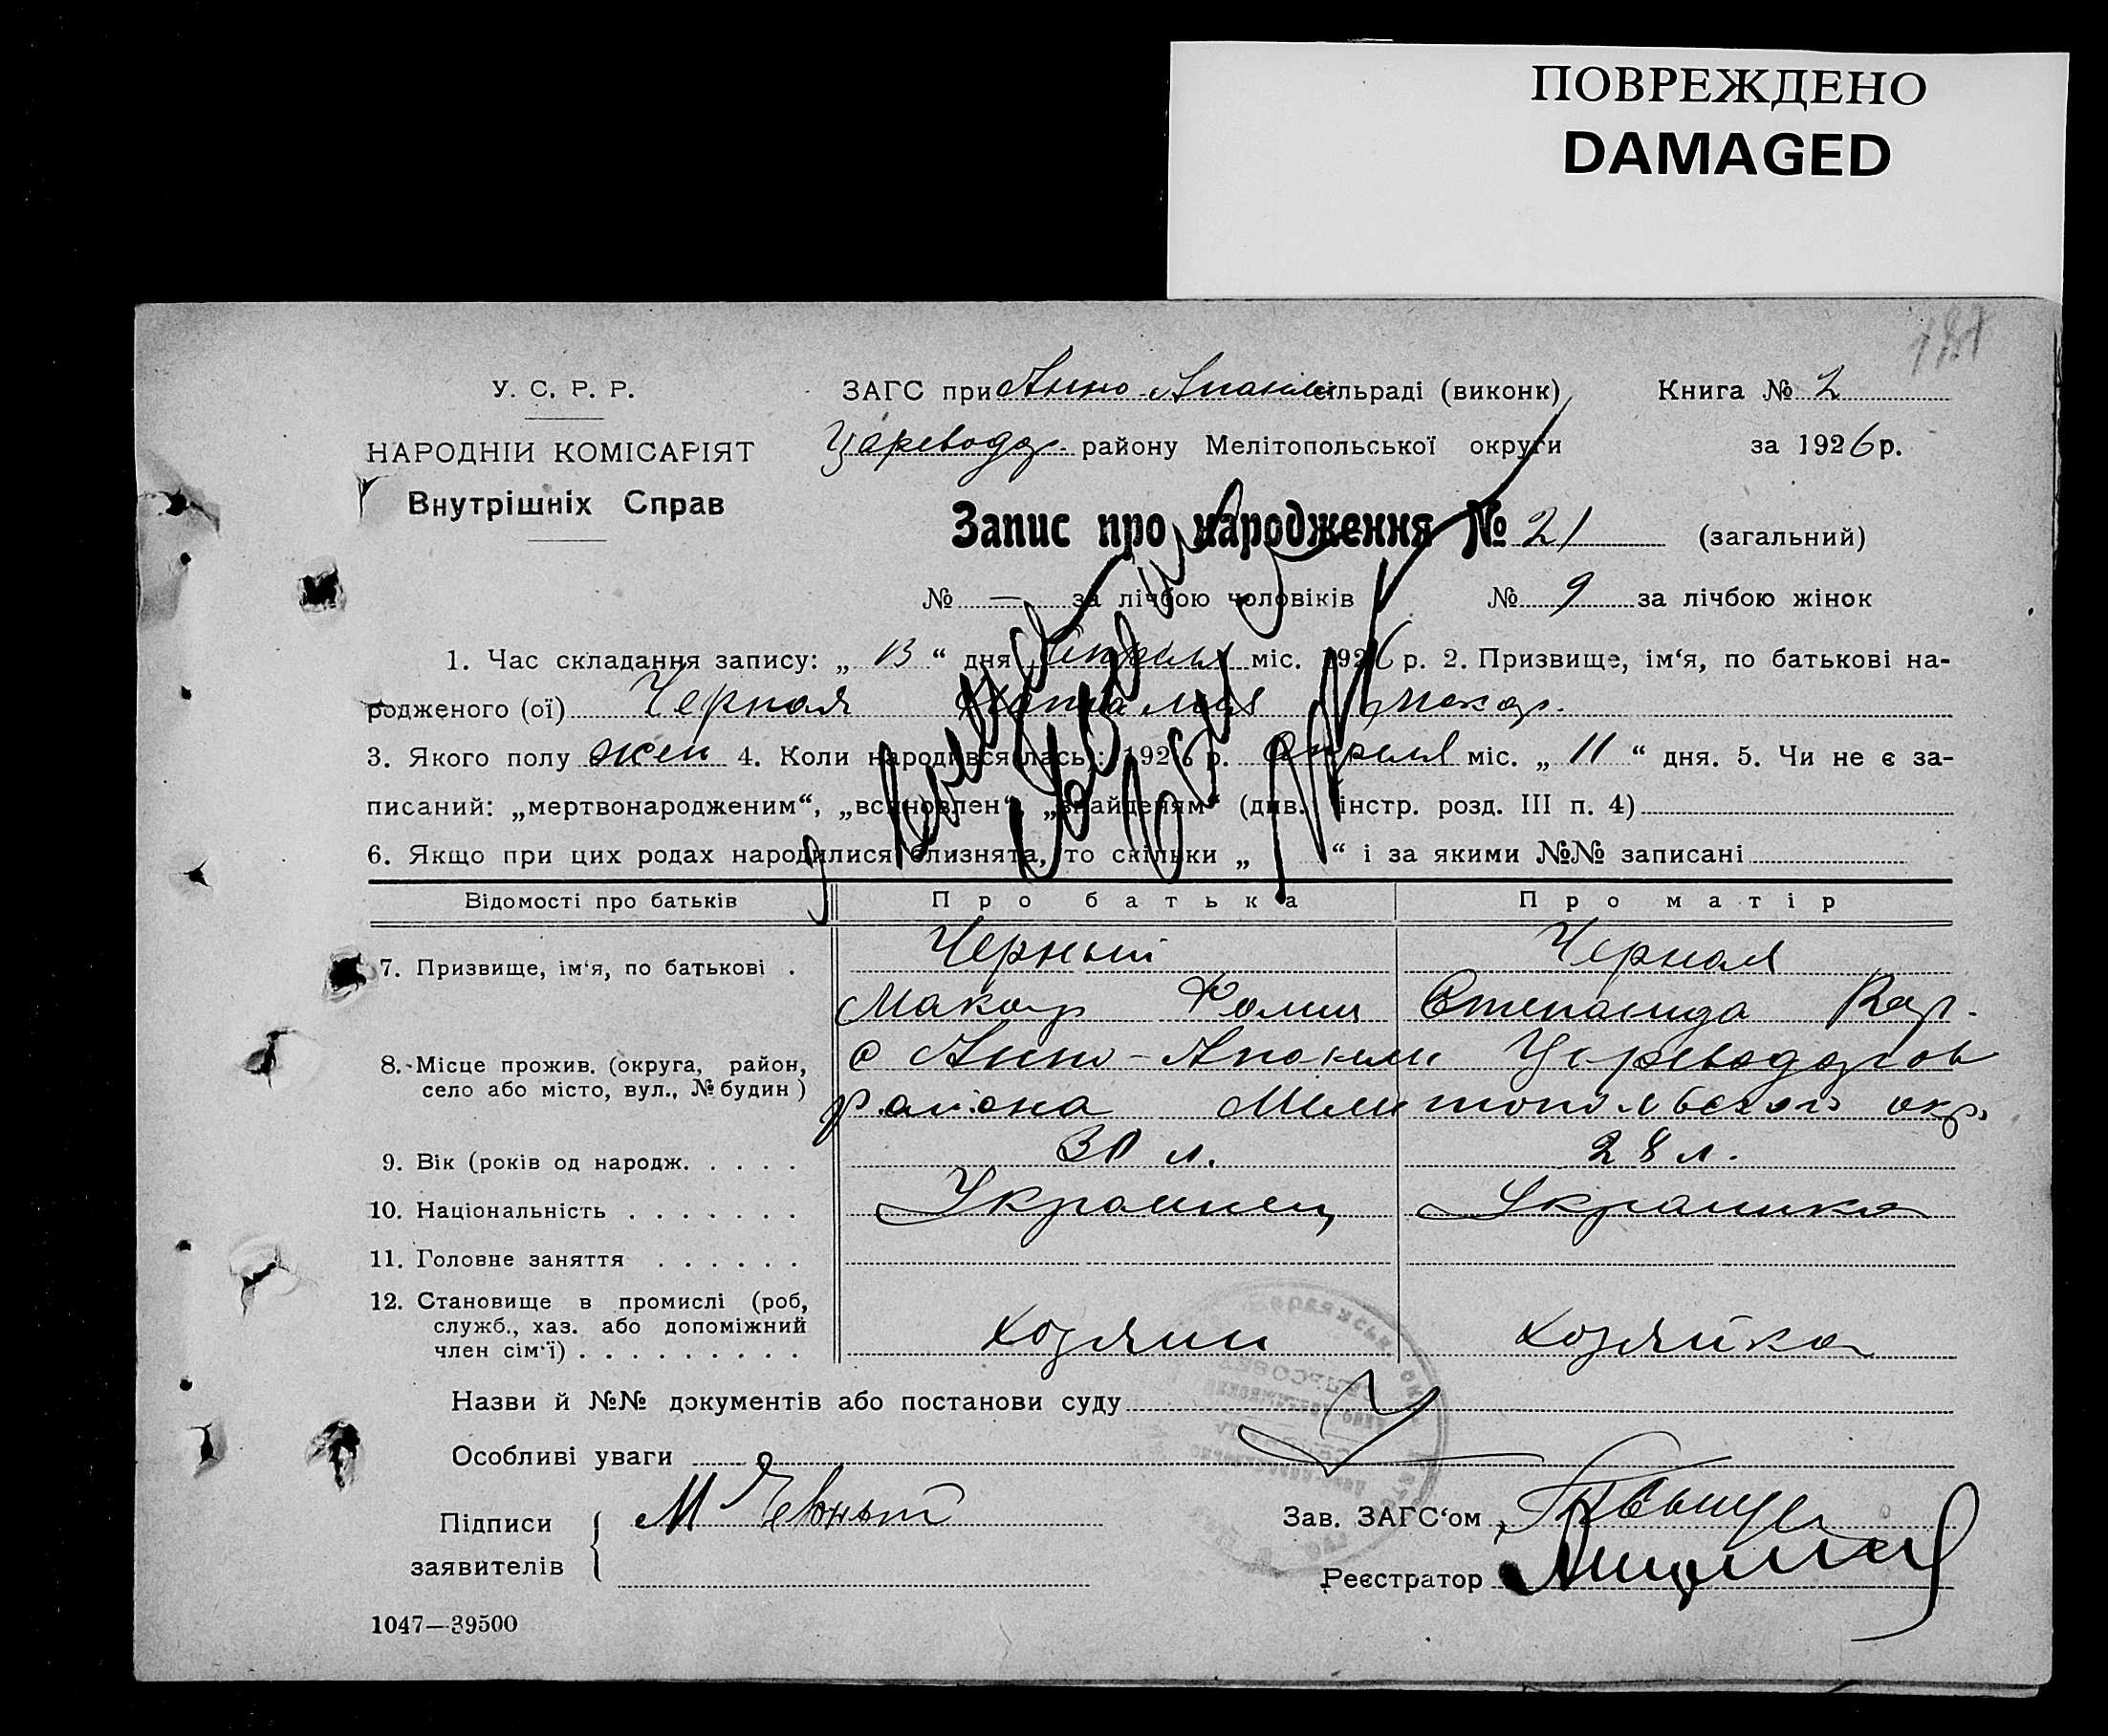 ПОВРЕЖДЕНО
DAMAGED
У. С. Р. Р.
ЗАГС при Анно- сільраді (виконк)
Книга № 2
НАРОДНІЙ КОМІСАРІЯТ
Царевода. району Мелітопольської округи
за 1926 р.
Внутрішніх Справ
Запис про народження № 21 (загальний)
№ — за лічбою чоловіків № 9 за лічбою жінок
1. Час складання запису: „ 13 “ дня Апреля міс. 1926 р. 2. Призвище, ім‘я, по батькові на-
родженого (ої) Черная Макар.
3. Якого полу жен 4. Коли народився(лась): 1926 р. Апреля міс. „ 11 “ дня. 5. Чи не є за-
писаний: „мертвонародженим“, „всиновлен“, „знайденям“ (див. інстр. розд. III п. 4)
6. Якщо при цих родах народилися близнята, то скільки „ “ і за якими №№ записані
Відомості про батьків
Про батька
Про матір
7. Призвище, ім‘я, по батькові .
Черный
Черная
Макар Фомич
Степанида Кар.
8. Місце прожив. (округа, район,
село або місто, вул., № будин )
с Анно-
района Мелитопольского окр.
9. Вік (років од народж. . . . .
30 л.
28 л.
10. Національність . . . . . . .
Украинец
Украинка
11. Головне заняття . . . . . .
12. Становище в промислі (роб,
служб., хаз. або допоміжний
член сім‘ї) . . . . . . . . .
хозяин
хозяйка
Назви й №№ документів або постанови суду
Особливі уваги
Підписи
заявителів
М Черный
Зав. ЗАГС‘ом
Реєстратор
1047—39500